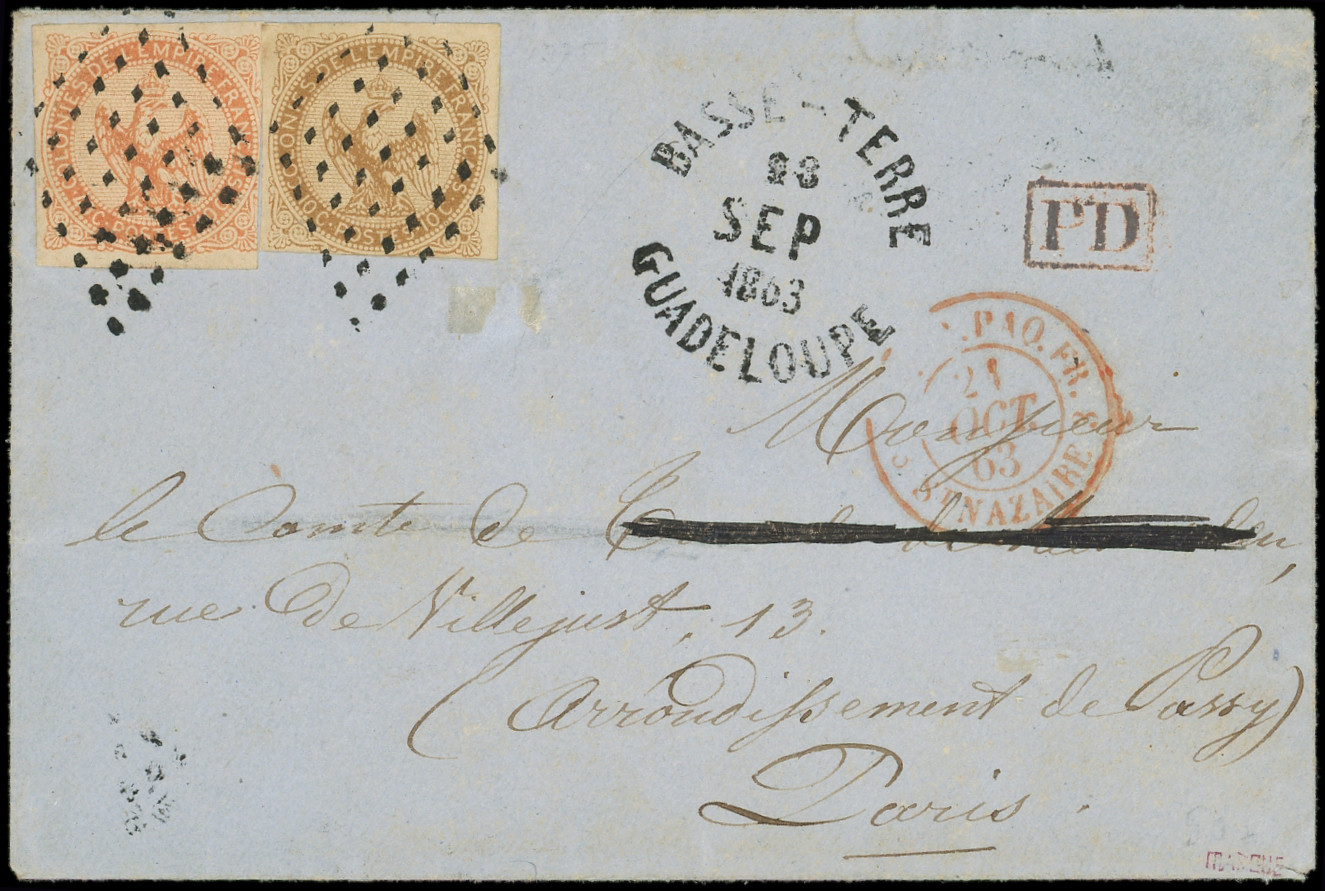 COLONIES DE L'EMPIRE FRANC
40 C. POSTES
COLONIES DE L'EMPIRE FRANC
10 C. POSTES 10 C.
BASSE-TERRE
28
SEP
1863
GUADELOUPE
PD
PAQ. FR.
21
OCT.
63
ST NAZAIRE
Monsieur
le Comte de
rue de Villejust, 13.
(Arrondissement de Passy)
Paris.